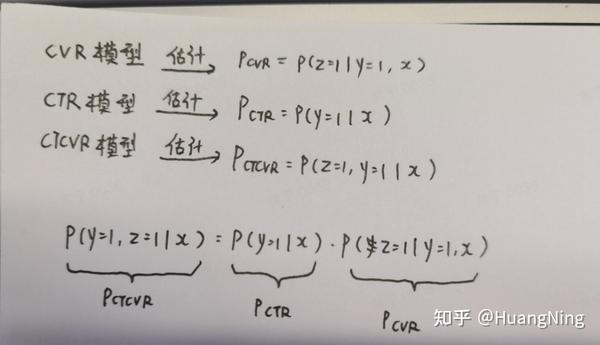 CVR模型 估计 PCVR = P(z=1|y=1, x)
CTR模型 估计 PCTR = P(y=1|x)
CTCVR模型 估计 PCTCVR = P(z=1, y=1|x)
P(y=1, z=1|x) = P(y=1|x) · P(z=1|y=1, x)
PCTCVR PCTR PCVR
知乎 @HuangNing